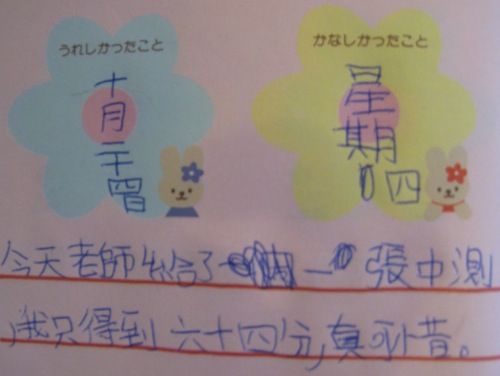 うれしかったこと
十月二十四日
かなしかったこと
星期四
今天老師給了一張中測
,我只得到六十四分,真可昔。